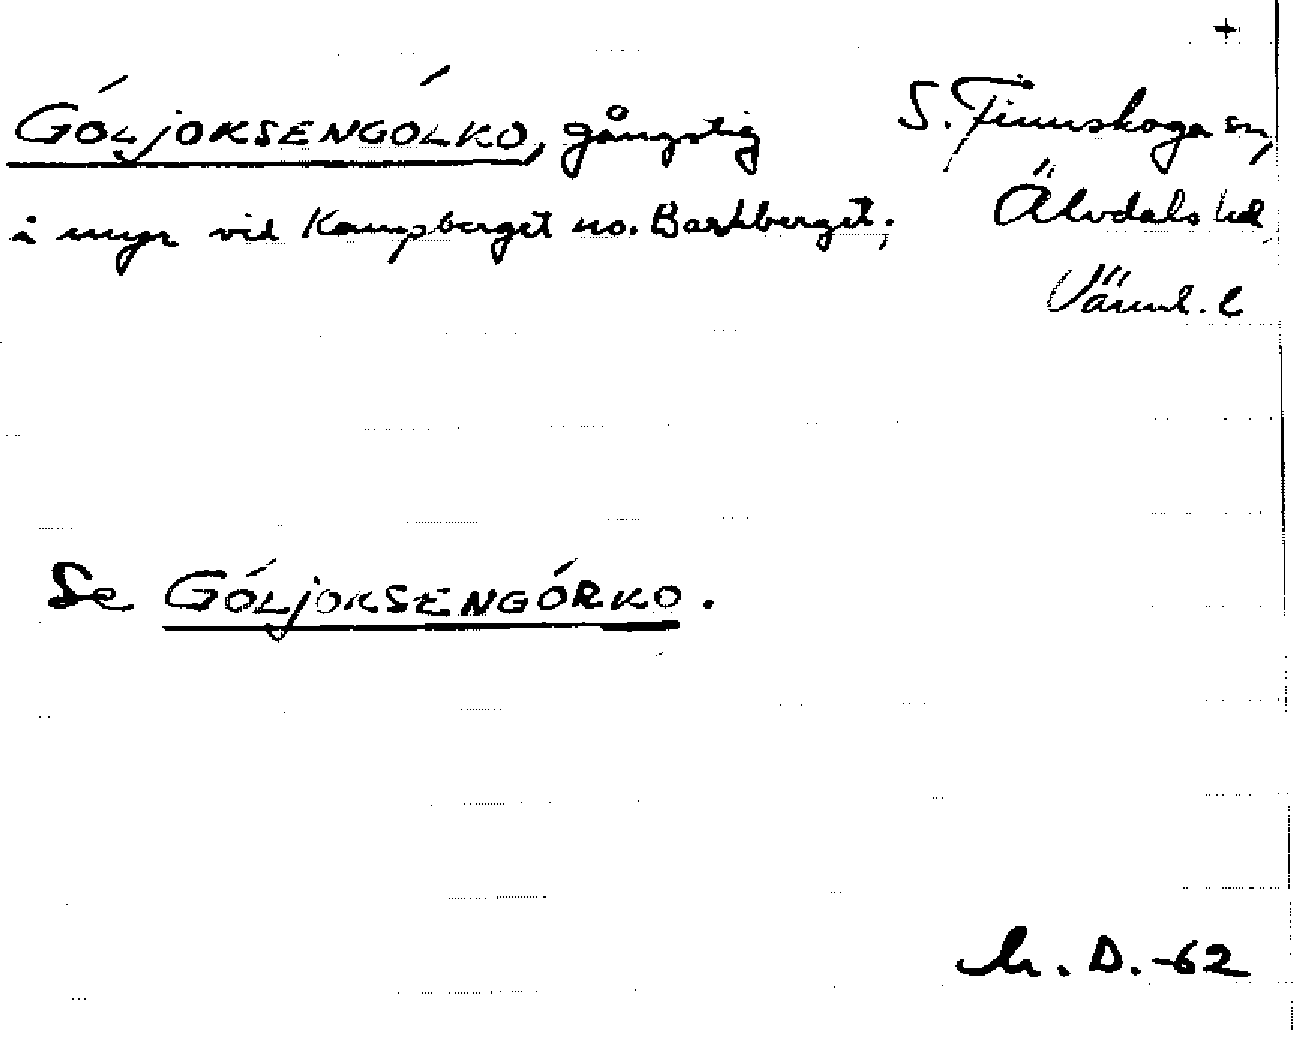 +
GÓLJOKSENGÓLKO, gångstig
i myr vid Kampberget no. Barkberget;
S. Finnskoga sn,
Älvdals hd
Värml. l
Se GÓLJOKSENGÓRKO.
M. D. -62